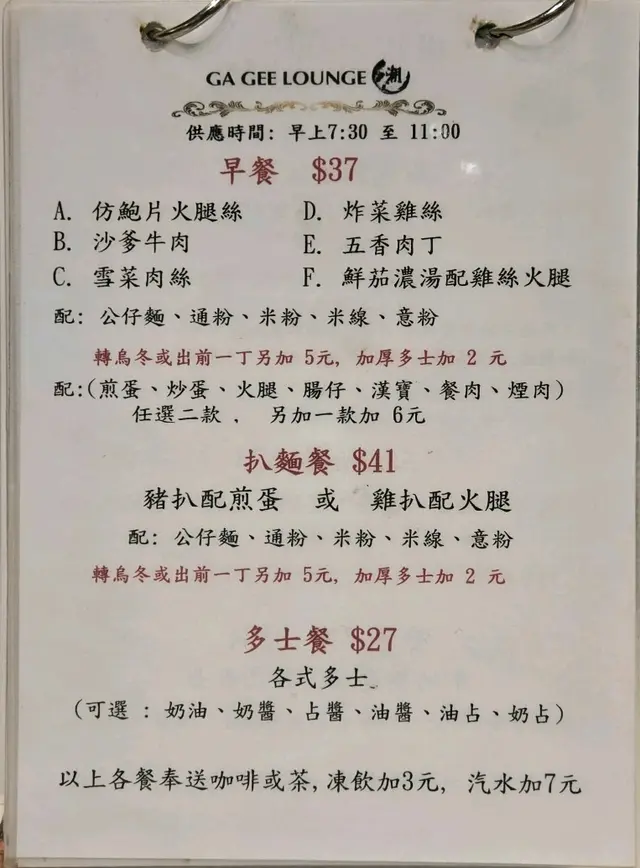 GA GEE LOUNGE 潮
供應時間: 早上7:30 至 11:00
早餐 $37
A. 仿鮑片火腿絲 D. 炸菜雞絲
B. 沙爹牛肉 E. 五香肉丁
C. 雪菜肉絲 F. 鮮茄濃湯配雞絲火腿
配: 公仔麵、通粉、米粉、米線、意粉
轉烏冬或出前一丁另加 5元, 加厚多士加 2 元
配:(煎蛋、炒蛋、火腿、腸仔、漢寶、餐肉、煙肉)
任選二款 , 另加一款加 6元
扒麵餐 $41
豬扒配煎蛋 或 雞扒配火腿
配: 公仔麵、通粉、米粉、米線、意粉
轉烏冬或出前一丁另加 5元, 加厚多士加 2 元
多士餐 $27
各式多士
(可選 : 奶油、奶醬、占醬、油醬、油占、奶占)
以上各餐奉送咖啡或茶, 凍飲加3元, 汽水加7元